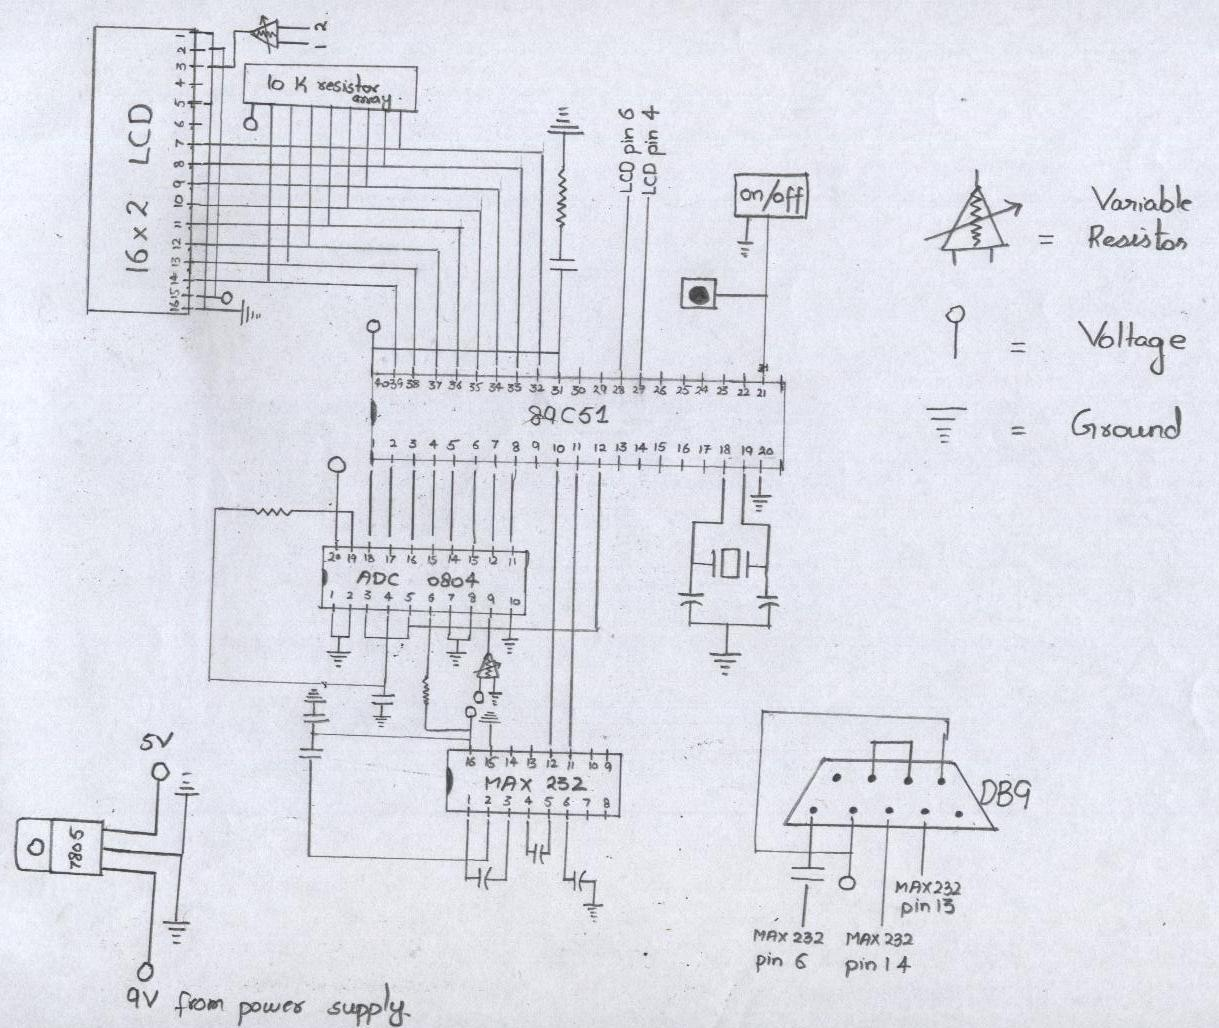 16x2 LCD
1
2
3
4
5
6
7
8
9
10
11
12
13
14
15
16
2
1
10 K resistor
array
LCD pin 6
LCD pin 4
on/off
= Variable
Resistor
= Voltage
= Ground
40 39 38 37 36 35 34 33 32 31 30 29 28 27 26 25 24 23 22 21
89C51
1 2 3 4 5 6 7 8 9 10 11 12 13 14 15 16 17 18 19 20
20 19 18 17 16 15 14 13 12 11
ADC 0804
1 2 3 4 5 6 7 8 9 10
16 15 14 13 12 11 10 9
MAX 232
1 2 3 4 5 6 7 8
5V
7805
9V from power supply
DB9
MAX232
pin 13
MAX 232
pin 6
MAX 232
pin 14